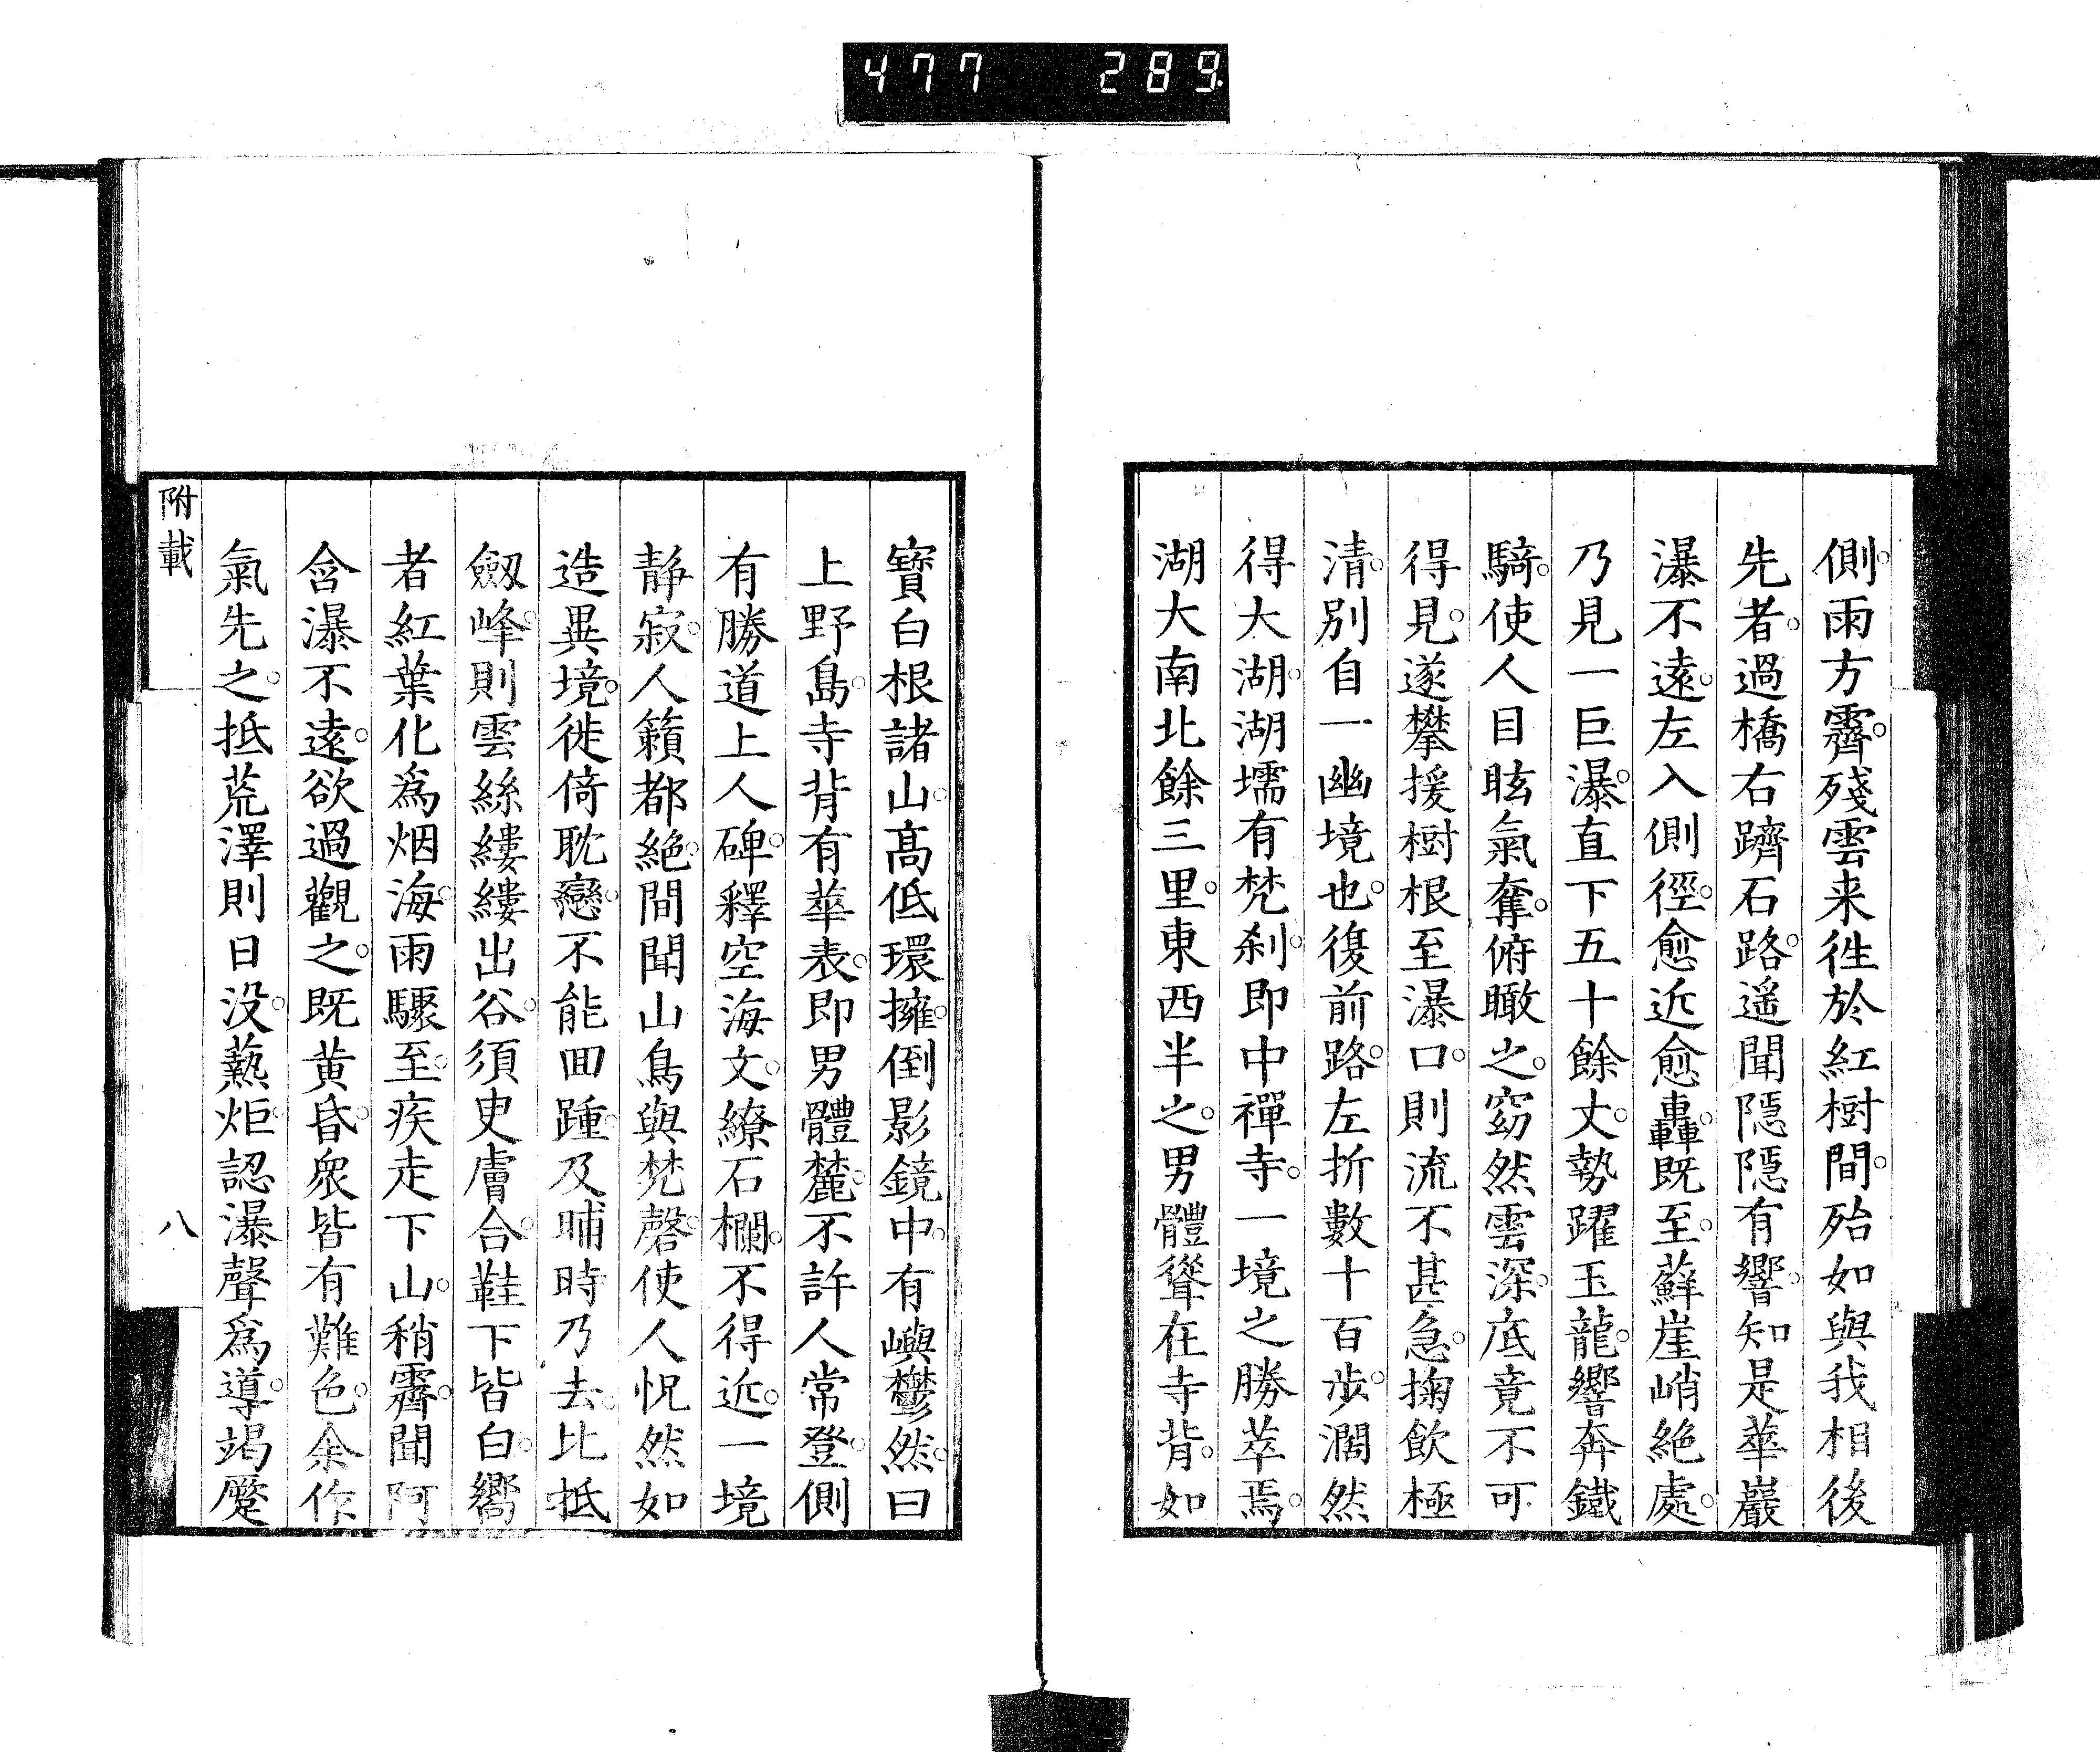 477 289
側。雨方霽。殘雲来徃於紅樹間。殆如與我相後
先者。過橋右躋石路。遥聞隱隱有響。知是華巖
瀑不遠。左入側徑。愈近愈轟。既至。蘚崖峭絶處。
乃見一巨瀑。直下五十餘丈。勢躍玉龍。響奔鐵
騎。使人目眩氣奪。俯瞰之。窈然雲深。底竟不可
得見。遂攀援樹根至瀑口。則流不甚急。掬飲極
清。別自一幽境也。復前路。左折數十百步。濶然
得大湖。湖壖有梵刹。即中禪寺。一境之勝萃焉。
湖大南北餘三里。東西半之。男體聳在寺背。如
寶白根諸山。髙低環擁。倒影鏡中。有嶼鬱然。曰
上野島。寺背有華表。即男體麓。不許人常登。側
有勝道上人碑。釋空海文。繚石欄。不得近。一境
静寂。人籟都絶。間聞山鳥與梵磬。使人怳然如
造異境。徙倚耽戀。不能回踵。及晡時乃去。比抵
劔峰。則雲絲縷縷出谷。須臾膚合。鞋下皆白。嚮
者紅葉化為烟海。雨驟至。疾走下山。稍霽。聞阿
含瀑不遠。欲過觀之。既黄昏。衆皆有難色。余作
氣先之。抵荒澤則日没。爇炬認瀑聲為導。竭蹷
附載
八